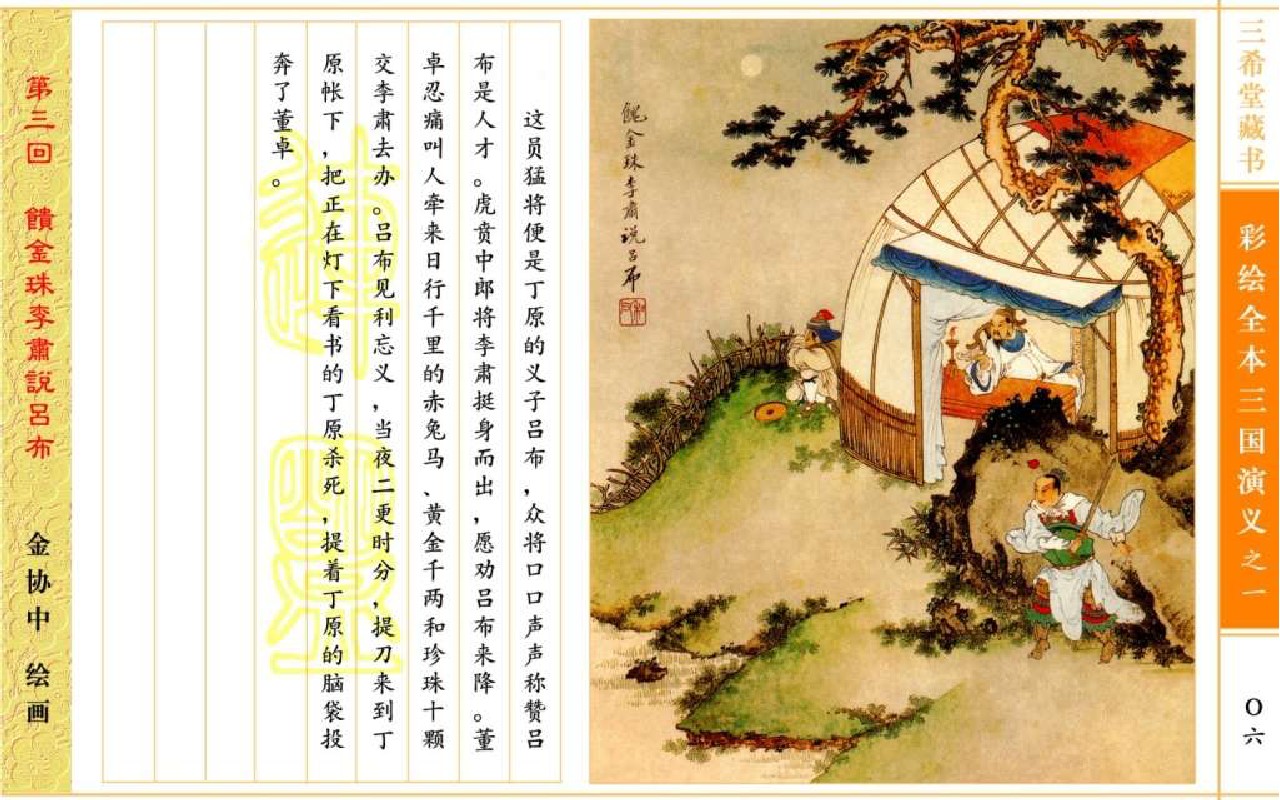 三希堂藏书
彩绘全本三国演义之一
〇六
餽金珠李肅说吕布
这员猛将便是丁原的义子吕布，众将口口声声称赞吕
布是人才。虎贲中郎将李肃挺身而出，愿劝吕布来降。董
卓忍痛叫人牵来日行千里的赤兔马、黄金千两和珍珠十颗
交李肃去办。吕布见利忘义，当夜二更时分，提刀来到丁
原帐下，把正在灯下看书的丁原杀死，提着丁原的脑袋投
奔了董卓。
第三回 饋金珠李肅説吕布
金协中 绘画